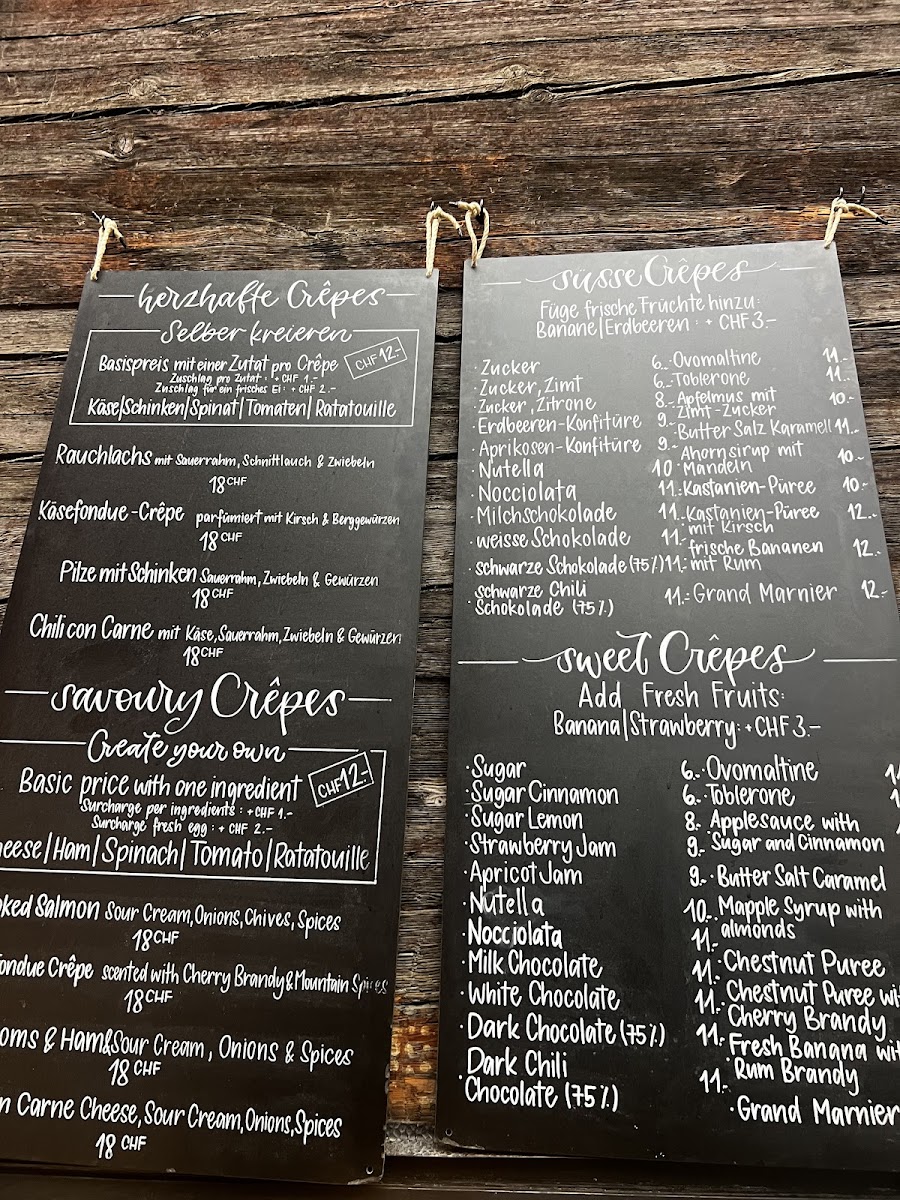 herzhafte Crêpes
Selber kreieren
Basispreis mit einer Zutat pro Crêpe CHF 12.-
Zuschlag pro Zutat : + CHF 1.-
Zuschlag für ein frisches Ei : + CHF 2.-
Käse|Schinken|Spinat|Tomaten|Ratatouille
Rauchlachs mit Sauerrahm, Schnittlauch & Zwiebeln
18 CHF
Käsefondue-Crêpe parfümiert mit Kirsch & Berggewürzen
18 CHF
Pilze mit Schinken Sauerrahm, Zwiebeln & Gewürzen
18 CHF
Chili con Carne mit Käse, Sauerrahm, Zwiebeln & Gewürzen
18 CHF
savoury Crêpes
Create your own
Basic price with one ingredient CHF 12.-
Surcharge per ingredients : + CHF 1.-
Surcharge fresh egg : + CHF 2.-
eese|Ham|Spinach|Tomato|Ratatouille
ked Salmon Sour Cream, Onions, Chives, Spices
18 CHF
ondue Crêpe scented with Cherry Brandy & Mountain Spices
18 CHF
oms & Ham & Sour Cream, Onions & Spices
18 CHF
n Carne Cheese, Sour Cream, Onions, Spices
18 CHF
süsse Crêpes
Füge frische Früchte hinzu:
Banane|Erdbeeren : + CHF 3.-
· Zucker 6.-
· Zucker, Zimt 6.-
· Zucker, Zitrone 8.-
· Erdbeeren-Konfitüre 9.-
· Aprikosen-Konfitüre 9.-
· Nutella 10.-
· Nocciolata 11.-
· Milchschokolade 11.-
· weisse Schokolade 11.-
· schwarze Schokolade (75%) 11.-
· schwarze Chili
Schokolade (75%) 11.-
· Ovomaltine 11.-
· Toblerone 11.-
· Apfelmus mit
Zimt-Zucker 10.-
· Butter Salz Karamell 11.-
· Ahornsirup mit
Mandeln 10.-
· Kastanien-Püree 10.-
· Kastanien-Püree
mit Kirsch 12.-
· frische Bananen
mit Rum 12.-
· Grand Marnier 12.-
sweet Crêpes
Add Fresh Fruits:
Banana|Strawberry: + CHF 3.-
· Sugar 6.-
· Sugar Cinnamon 6.-
· Sugar Lemon 8.-
· Strawberry Jam 9.-
· Apricot Jam 9.-
· Nutella 10.-
· Nocciolata 11.-
· Milk Chocolate 11.-
· White Chocolate 11.-
· Dark Chocolate (75%) 11.-
· Dark Chili
Chocolate (75%) 11.-
· Ovomaltine
· Toblerone
· Applesauce with
Sugar and Cinnamon
· Butter Salt Caramel
· Mapple Syrup with
almonds
· Chestnut Puree
· Chestnut Puree wi
Cherry Brandy
· Fresh Banana wi
Rum Brandy
· Grand Marnier